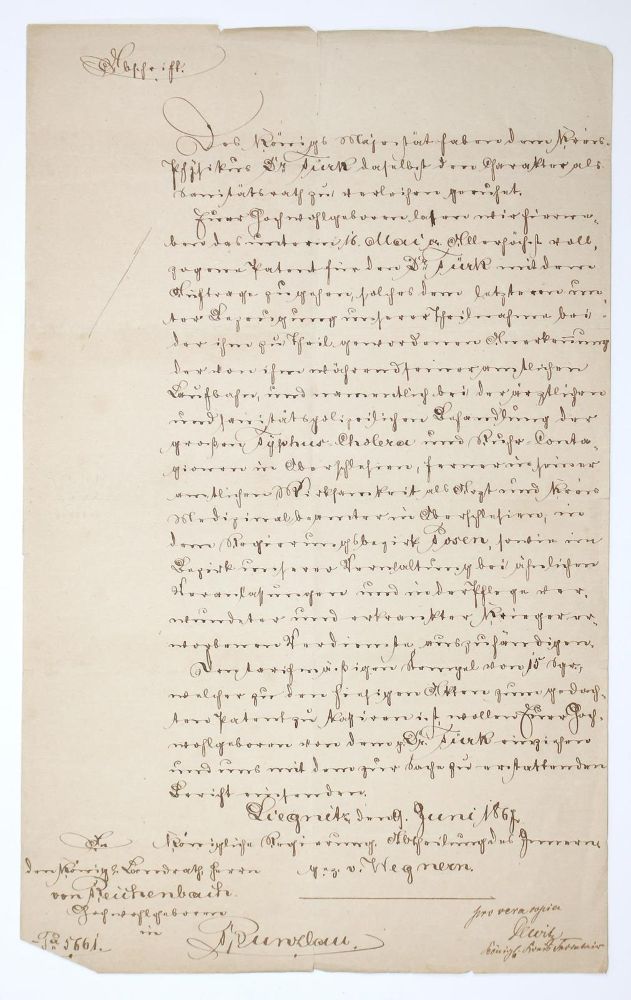 Abschrift.
Des Königs Majestät haben dem Kreis-
Physikus Dr. Türk daselbst den Charakter als
Sanitätsrath zu verleihen geruhet.
Euer Hochwohlgeboren lassen wir hierne-
ben das unterm 16. Mai cr. Allerhöchst voll-
zogene Patent für den Dr. Türk mit dem
Auftrage zugehen, solches dem letzteren un-
ter Bezeugung unserer Theilnahme bei
der ihm zu Theil gewordenen Anerkennung
der von ihm während seiner amtlichen
Laufbahn, und namentlich bei der ärztlichen
und sanitätspolizeilichen Behandlung der
großen Typhus- Cholera und Ruhr- Conta-
gionen in Oberschlesien, ferner in seiner
amtlichen Wirksamkeit als Arzt und Kreis
Medizinalbeamter in Oberschlesien, in
dem Regierungsbezirk Posen, sowie im
Bezirk unserer Verwaltung bei ähnlichen
Veranlassungen und in der Pflege ver-
wundeter und erkrankter Krieger er-
worbenen Verdienste auszuhändigen.
Den tarifmäßigen Stempel von 15 Sgr.,
welcher zu den hiesigen Akten zum gedach-
ten Patent zu kassiren ist, wollen Euer Hoch-
wohlgeboren von dem p. Dr. Türk einziehen
und uns mit dem zur Sache zu erstattenden
Bericht einsenden.
Liegnitz, den 9. Juni 1867.
Königliche Regierung. Abtheilung des Innern.
gez. v. Wegnern.
An
den Königl. Landrath Herrn
von Reichenbach
Hochwohlgeboren
in
Bunzlau.
5661.
pro vera copia
Königl. Kreis Secretair